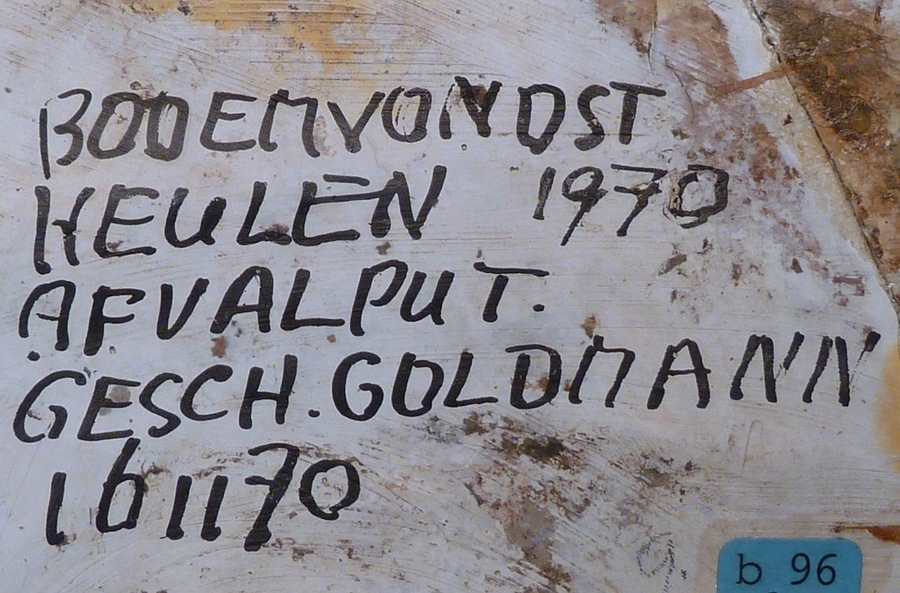 BODEMVONDST
KEULEN 1970
AFVALPUT.
GESCH. GOLDMANN
161170
b 96